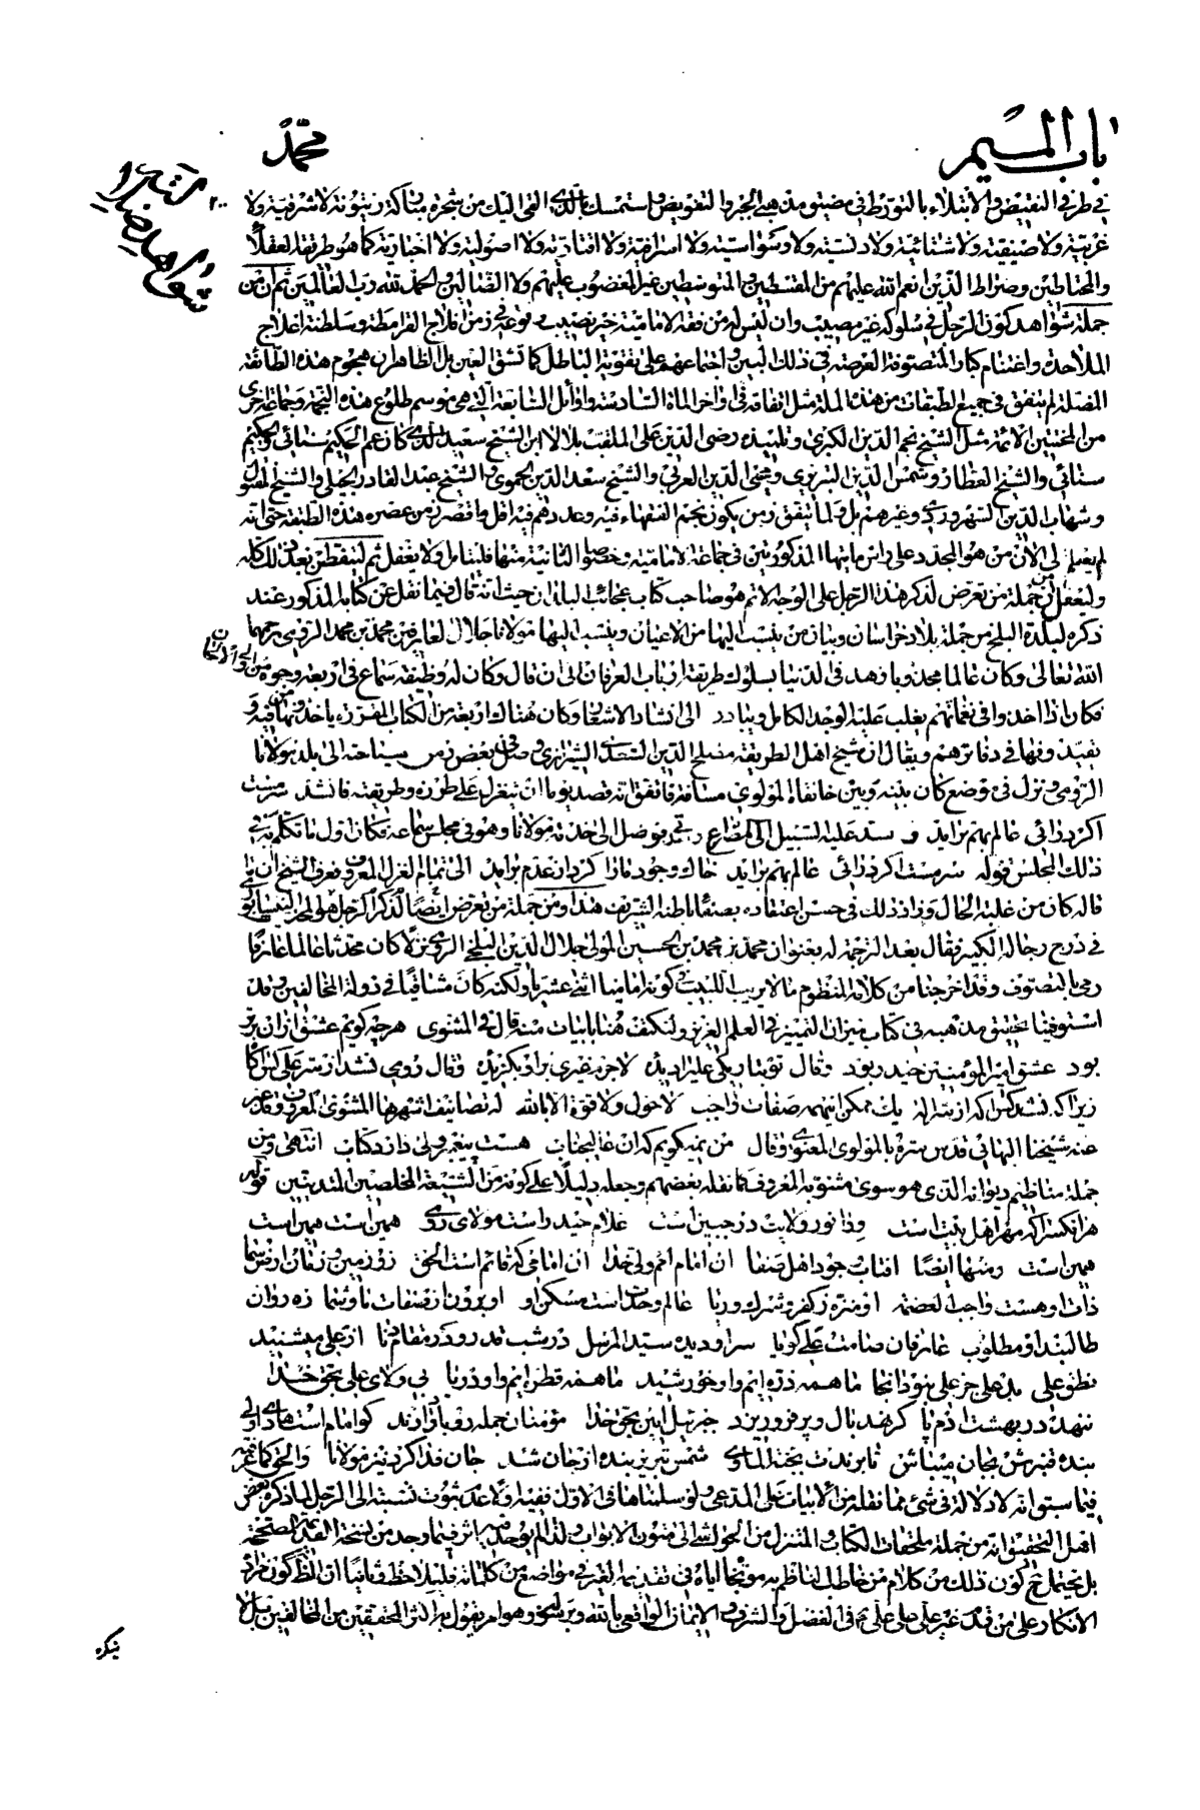 باب الميم
محمد
في طرفي النقيض والابتلاء بالتورط في مذهبي الجبر والتفويض ولستمسك بالذي القى اليك من شجرة مباركة زيتونة لا شرقية ولا
غربية ولا ضيقية ولا شتائية ولا دنسية ولا وسواسية ولا اسرافية ولا اقتارية ولا اصولية ولا اخبارية كما هو طريقة العقلاء
والمحتاطين وصراط الذين انعم الله عليهم من المقسطين والمتوسطين غير المغضوب عليهم ولا الضالين والحمد لله رب العالمين ثم ان من
جملة شواهد كون الرجل في سلوكه غير مصيب وان ليس له من فقه الامامية خير نصيب وقوعه في زمن افلاج القرامطة وسلطنة اعلاج
الملاحدة واغتنام كبار المتصوفة الفرصة في ذلك البين واجتماعهم على تقوية الباطل كما تشق العين بل الظاهر ان هجوم هذه الطائفة
المضلة لم يتفق في جميع طبقات من هذه الملة مثل اتفاقه في اواخر المائة السادسة واوائل السابعة التي هي موسم طلوع هذه النجمة وجماعة اخرى
من المجتبين الائمة مثل الشيخ نجم الدين الكبرى وتلميذه رضى الدين على الملقب بلالا ابن الشيخ سعيد الذي كان عم الحكيم سنائي والحكيم
سنائي والشيخ العطار وشمس الدين التبريزي ومحي الدين العربي والشيخ سعد الدين الحموي والشيخ عبد القادر الجيلي والشيخ المقتول
وشهاب الدين السهروردي وغيرهم بل وقلما يتفق زمن يكون نجم الفقهاء فيه وعددهم فيه اقل واقصر من عصر هذه الطبقة حتى انه
لم يعلم لي الان من هو المجدد على راس ماتيها المذكورتين في جماعة الامامية وخصوصا الثانية منها فليتامل ولا يغفل ثم ليتفطن بعد ذلك كله
وليعقل ان من جملة من تعرض لذكر هذا الرجل على الوجه الاتم هو صاحب كتاب عجائب البلدان حيث انه قال فيما نقل عن كتابه المذكور عند
ذكره لبلدة البلخ من جملة بلاد خراسان وبيان من ينتسب اليها من الاعيان وينتسب اليها مولانا جلال العارفين محمد بن محمد الرومي رحمهما
الله تعالى وكان عالما مجذوبا وزهد في الدنيا بسلوك طريقة ارباب العرفان الى ان قال وكان له وظيفة سماع في اربعة وجوه من الحان
فكان اذا اخذوا في نغماتهم يغلب عليه الوجد الكامل ويبادر الى انشاد الاشعار وكان هناك اربعة من الكتاب المقررة ياخذونها من فيه و
يقيدونها في دفاترهم ويقال ان شيخ اهل الطريقة مصلح الدين السعدي الشيرازي وصل في بعض زمن سياحته الى بلد مولانا
الرومي ونزل في موضع كان بينه وبين خانقاه المولوي مسافة فاتفق انه قصد يوما ان يتغزل على طرزه وطريقته فانشد سرمست
اگر درائي عالم بهم برايد و سد عليه السبيل الى المصراع فوصل الى خدمة مولانا وهو في مجلس سماعه فكان اول ما تكلم به في
ذلك المجلس قوله سرمست اگر درائي عالم بهم برايد خاك وجود ما را گرد از عدم برايد الى تمام الغزل المعروف فعرف الشيخ ان ما
قاله كان من غلبة الحال وزاد ذلك في حسن اعتقاده بصفاء باطنه الشريف هذا ومن جملة من تعرض ايضا لذكر الرجل هو المحدث النيسابوري
في درج رجاله الكبير فقال بعد الترجمة له بعنوان محمد بن محمد بن الحسين المولى جلال الدين البلخي الرومي كان محدثا عالما عارفا
رمي بالتصوف وقد اخرجنا من كلامه المنظوم ما لا يريب اللبيب في كونه اماميا اثنى عشريا ولكنه كان متاقيا في دولة المخالفين وقد
استوفينا تحقيق مذهبه في كتاب ميزان التمييز في العلم العزيز ولنكتف هنا بابيات منه قال في المثنوي هرچه گويم عشق از آن برتر
بود عشق امير المؤمنين حيدر بود وقال تو بتاريكى على را ديدهٔ لاجرم غيرى براو بگزيدهٔ وقال رومي نشد از سر على كس اگاه
زيرا كه نشد كس اگه از سر اله يك ممكن و اينهمه صفات واجب لا حول ولا قوة الا بالله له تصانيف اشهرها المثنوي المعروف وقد عبر
عنه شيخنا البهائي قدس سره بالمولوي المعنوي وقال من نميگويم كه ان عاليجناب هست پيغمبر ولى دارد كتاب انتهى ومن
جملة مناظيم ديوانه الذي هو سوى مثنويه المعروف كما نقله بعضهم وجعله دليلا على كونه من الشيعة المخلصين المتدينين قوله
هر انكس را كه مهر اهل بيت است ورا نور ولايت در جبين است غلام حيدر است مولاى رومى همين است همين است
همين است ومنها ايضا افتاب وجود اهل صفا ان امام امم ولى خدا ان امامى كه قائم است الحق زو زمين وزمان وارض وسما
ذات او هست واجب العصمة او منزه ز كفر و شرك و ريا عالم وحدت است مسكن او او برون از صفات ما و شما ره روان
طالبند او مطلوب عارفان صامت على گويا سر او ديده سيد المرسل در شب قدر در مقام دنا از على ميشنيد
نطق على بد على جز على نبود انجا ما همه ذره ايم او خورشيد ما همه قطره ايم او دريا بى ولاى على بحق خدا
ننهد در بهشت ادم پا گر نهد بال و پر فرو ريزد جبرئيل امين بحق خدا مؤمنان جمله رو باو ارند كو امام است هادى و اولى
بنده قنبرش بجان ميباش تا برندت بجنة المأوى شمس تبريز بنده از جان شد جان فدا كرد نيز مولانا والحق كما
فيما سبق انه لا دلالة في شئ مما نقله من الابيات على المدعى ولو سلمناها في الاول نفيه ولا عدم ثبوت نسبته الى الرجل لما ذكره بعض
اهل التحقيق انه من جملة ملحقات الكتاب والمنتزل من الحواشي الى متون الابواب ولذا لم يوجد اثر فيما وجد من نسخه القديمة المصححة
بل يحتمل كون ذلك من كلام من خاطب الناظم به موبخا اياه في تقديمه الغير في مواضع من كلماته فليلاحظ وثانيا ان الظ كون مراده
الانكار على من قدم غير علي على علي ع في الفضل والشرف والايمان الواقعي بالله وبرسوله وهو امر يقول به اكثر المحققين من المخالفين بل لا
ينكره